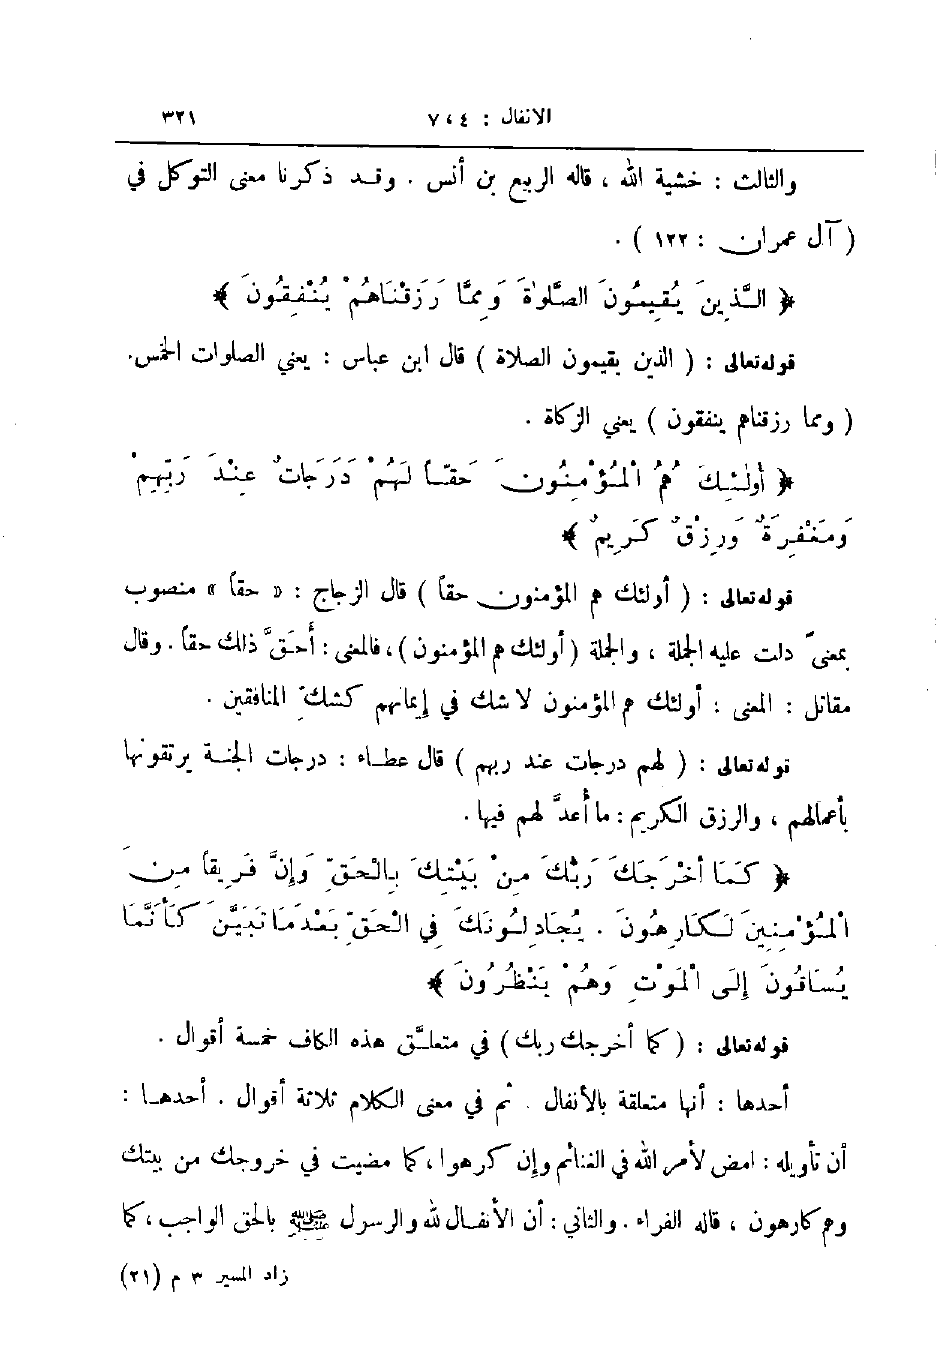 الانفال : ٤ ، ٧ ٣٢١
والثالث : خشية الله ، قاله الربيع بن أنس . وقـد ذكرنا معنى التوكل في
( آل عمران : ١٢٢ ) .
﴿ الَّذِينَ يُقِيمُونَ الصَّلٰوةَ وَمِمَّا رَزَقْنَاهُمْ يُنْفِقُونَ ﴾
قوله تعالى : ( الذين يقيمون الصلاة ) قال ابن عباس : يعني الصلوات الخمس.
( ومما رزقناهم ينفقون ) يعني الزكاة .
﴿ أُولٰئِكَ هُمُ الْمُؤْمِنُونَ حَقّاً لَهُمْ دَرَجَاتٌ عِنْدَ رَبِّهِمْ
وَمَغْفِرَةٌ وَرِزْقٌ كَرِيمٌ ﴾
قوله تعالى : ( أولئك هم المؤمنون حقاً ) قال الزجاج : « حقاً » منصوب
بمعنىً دلت عليه الجملة ، والجملة (أولئك هم المؤمنون)، فالمعنى : أَحَقَّ ذلك حقاً. وقال
مقاتل : المعنى : أولئك هم المؤمنون لا شك في إيمانهم كشك المنافقين .
قوله تعالى : ( لهم درجات عند ربهم ) قال عطـاء : درجات الجنـة يرتقونها
بأعمالهم ، والرزق الكريم : ما أُعدَّ لهم فيها .
﴿ كَمَا أَخْرَجَكَ رَبُّكَ مِنْ بَيْتِكَ بِالْحَقِّ وَإِنَّ فَرِيقاً مِنَ
الْمُؤْمِنِينَ لَكَارِهُونَ . يُجَادِلُونَكَ فِي الْحَقِّ بَعْدَمَا تَبَيَّنَ كَأَنَّمَا
يُسَاقُونَ إِلَى الْمَوْتِ وَهُمْ يَنْظُرُونَ ﴾
قوله تعالى : ( كما أخرجك ربك ) في متعلَّق هذه الكاف خمسة أقوال .
أحدها : أنها متعلقة بالأنفال . ثم في معنى الكلام ثلاثة أقوال . أحدهـا :
أن تأويله : امض لأمر الله في الغنائم وإن كرهوا ، كما مضيت في خروجك من بيتك
وهم كارهون ، قاله الفراء . والثاني : أن الأنفـال لله والرسول ﷺ بالحق الواجب ، كما
زاد المسير ٣ م (٢١)